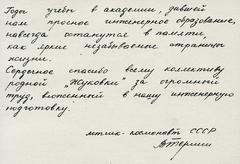 Годы учебы в академии, давшей
нам прочное инженерное образование,
навсегда останутся в памяти,
как яркие незабываемые страницы
жизни.
Сердечное спасибо всему коллективу
родной „Жуковки" за огромный
труд, вложенный в нашу инженерную
подготовку.
космонавт СССР